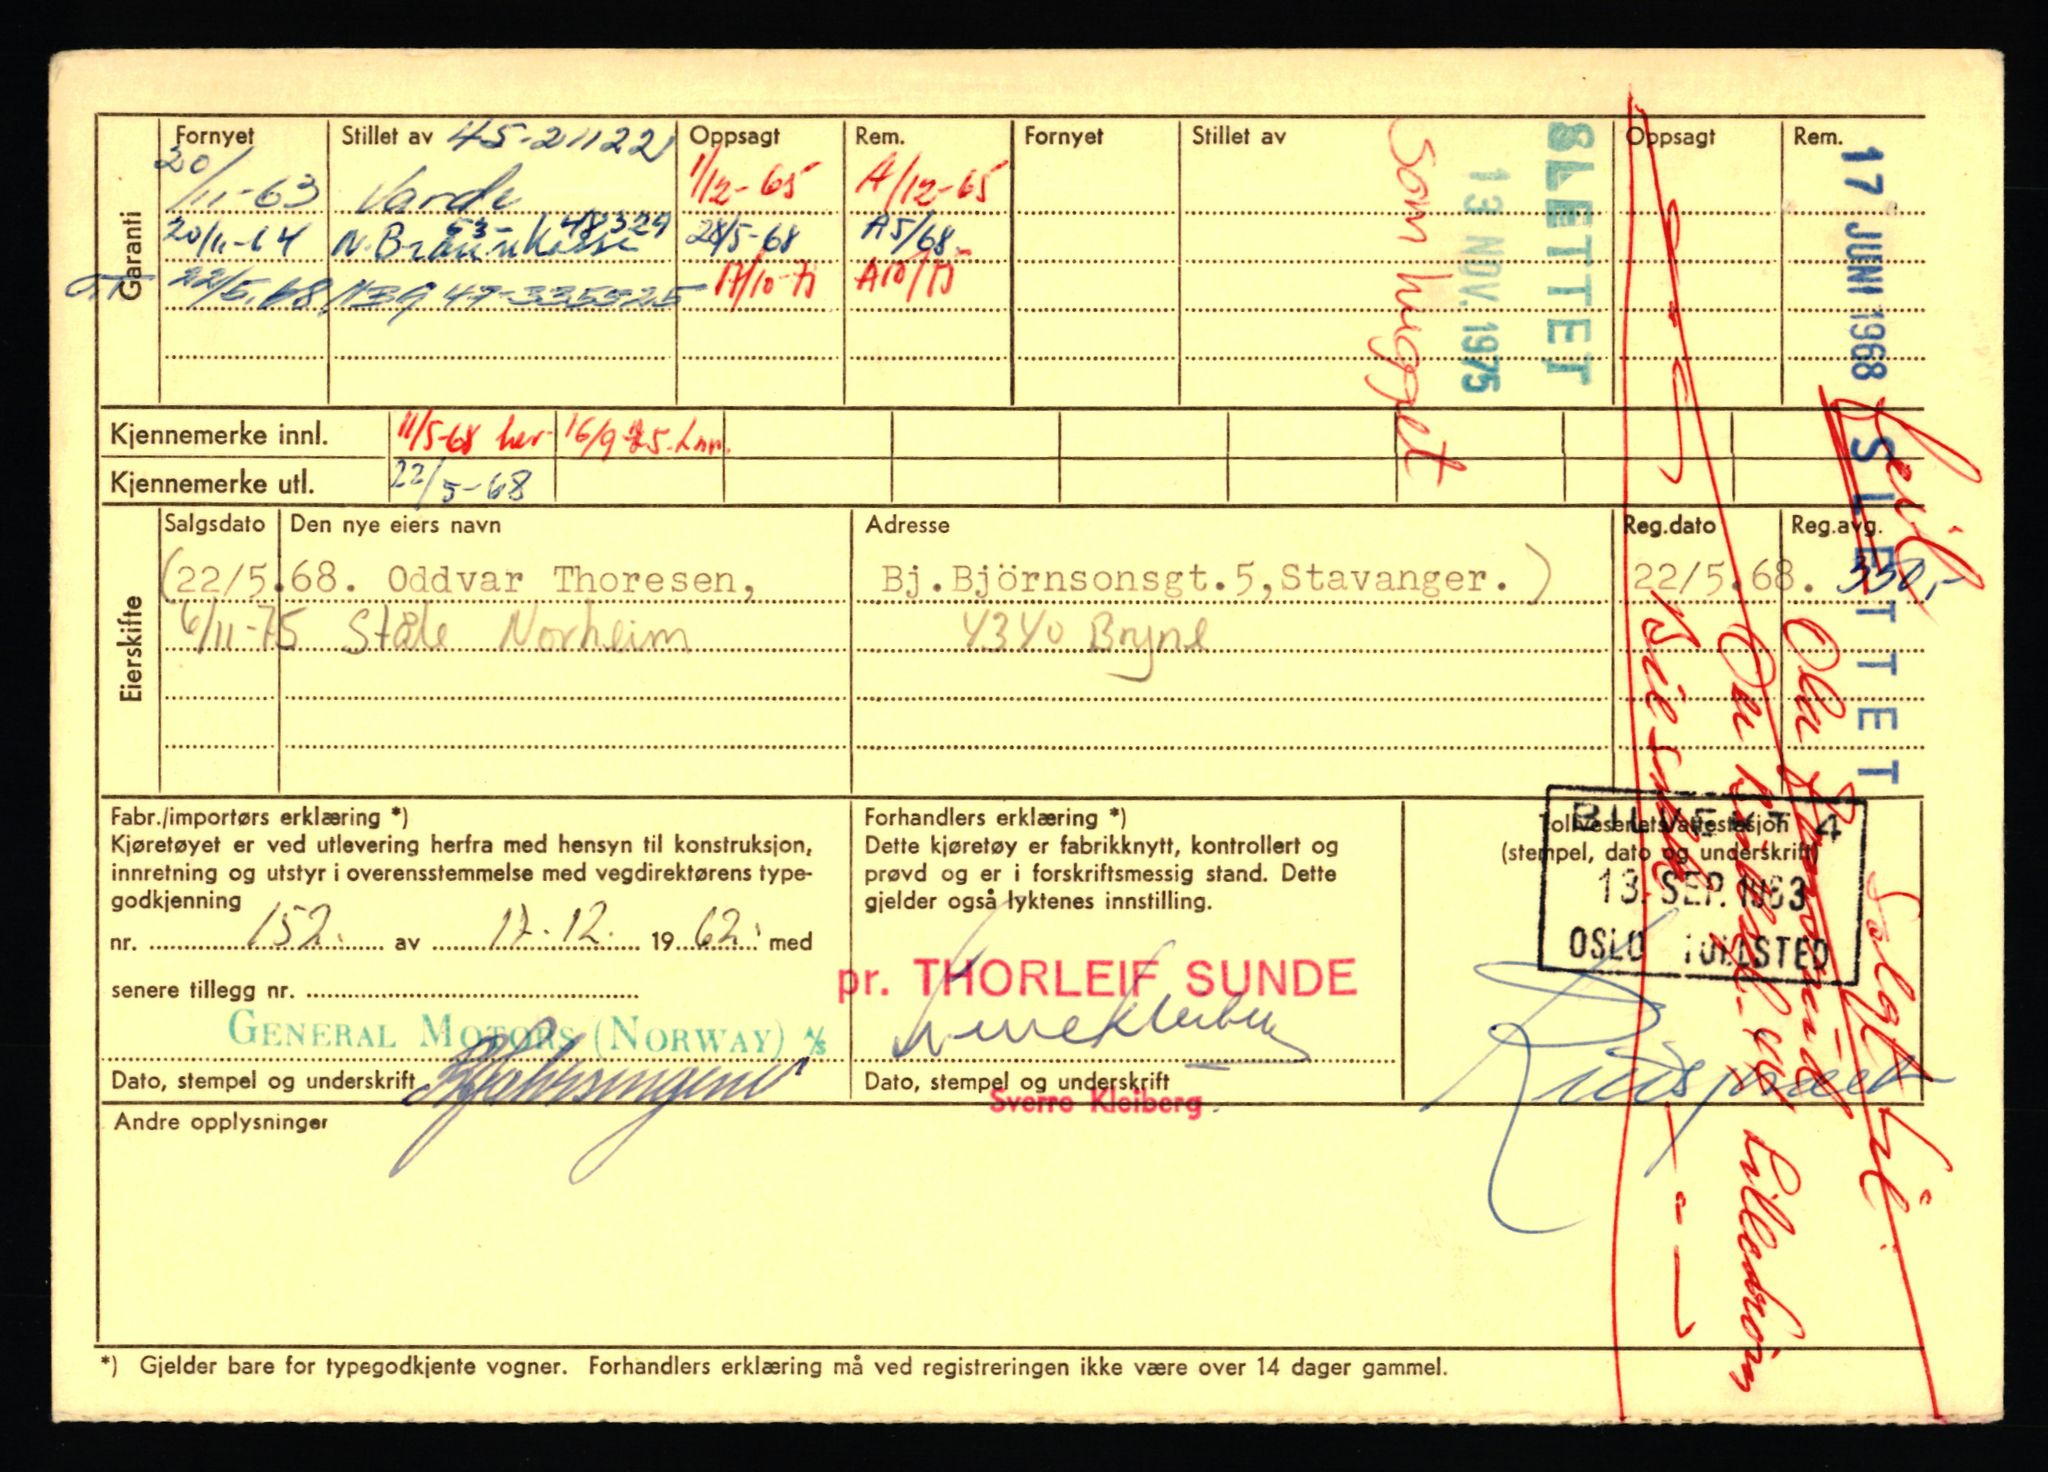 Fornyet Stillet av 45-21122 Oppsagt Rem. Fornyet Stillet av Oppsagt Rem.
Garanti
20/11-63 Varde 1/12-65 A/12-65
20/11-64 N. Braun 53-48329 28/5-68 A5/68
22/5.68 1139 47-335525 17/10-75 A10/75
SLETTET
13 NOV. 1975
Som hugget
17 JUNI 1968
SLETTET
Feil
Kjennemerke innl. 11/5-68 her 16/9-75. Inn.
Kjennemerke utl. 22/5-68
Eierskifte
Salgsdato Den nye eiers navn Adresse Reg.dato Reg.avg.
(22/5.68. Oddvar Thoresen, Bj.Björnsonsgt.5,Stavanger.) 22/5.68. 330,-
6/11-75 Ståle Norheim 4340 Bryne
Solgt til
Ola
Lillestrøm
Fabr./importørs erklæring *)
Kjøretøyet er ved utlevering herfra med hensyn til konstruksjon,
innretning og utstyr i overensstemmelse med vegdirektørens type-
godkjenning
nr. 152. av 17.12. 1962. med
senere tillegg nr.
GENERAL MOTORS (NORWAY) A/S
Dato, stempel og underskrift
Forhandlers erklæring *)
Dette kjøretøy er fabrikknytt, kontrollert og
prøvd og er i forskriftsmessig stand. Dette
gjelder også lyktenes innstilling.
pr. THORLEIF SUNDE
Sverre Kleiberg
Dato, stempel og underskrift
Sverre Kleiberg.
Tollvesenets attestasjon
(stempel, dato og underskrift)
13. SEP. 1963
OSLO TOLLSTED
Andre opplysninger
*) Gjelder bare for typegodkjente vogner. Forhandlers erklæring må ved registreringen ikke være over 14 dager gammel.